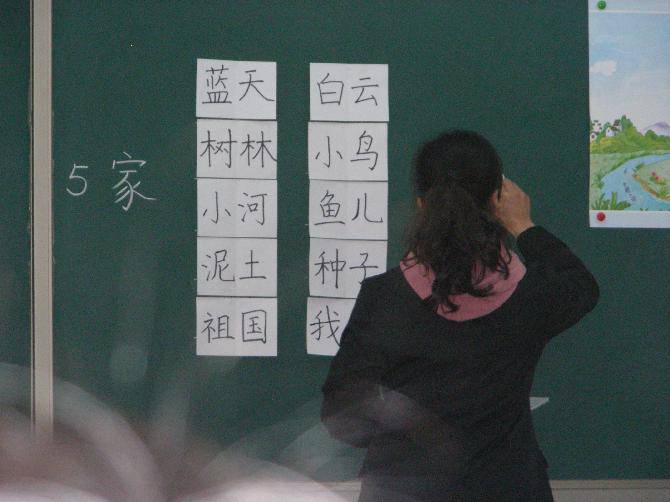 5 家
蓝天 白云
树林 小鸟
小河 鱼儿
泥土 种子
祖国 我